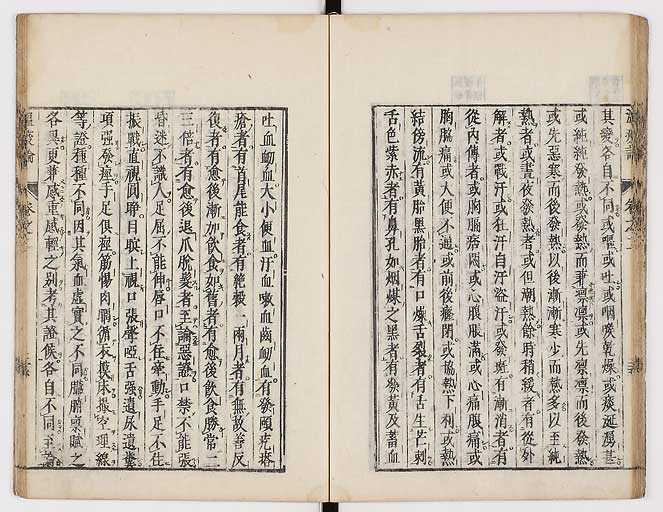 其變各自不同或嘔或吐或咽喉乾燥或痰涎湧甚
或純純發熱或發熱而兼凛凛或先凛凛而後發熱
或先惡寒而後發熱以後漸漸寒少而熱多以至純
熱者或晝夜發熱者或但潮熱餘時稍緩者有從外
解者或戰汗或狂汗自汗盗汗或發斑有漸消者有
從內傳者或胸膈痞悶或心腹脹滿或心痛腹痛或
胸脇痛或大便不通或前後癃閉或協熱下利或熱
結傍流有黄胎黑胎者有口燥舌裂者有舌生芒刺
舌色紫赤者有鼻孔如烟煤之黑者有發黄及蓄血
吐血衂血大小便血汗血嗽血齒衂血有發頤疙瘩
瘡者有首尾能食者有絶穀一兩月者有無故善反
復者有愈後漸加飲食如舊者有愈後飲食勝常二
三倍者有愈後退爪脫髮者至論惡證口禁不能張
昏迷不識人足屈不能伸唇口不住牽動手足不住
振戰直視圓睁目瞪上視口張聲啞舌强遺尿遺糞
項强發痙手足俱痙筋惕肉瞤循衣摸床撮空理線
等證種種不同因其氣血虛實之不同臟腑禀賦之
各異更兼感重感輕之别考其證候各自不同至論